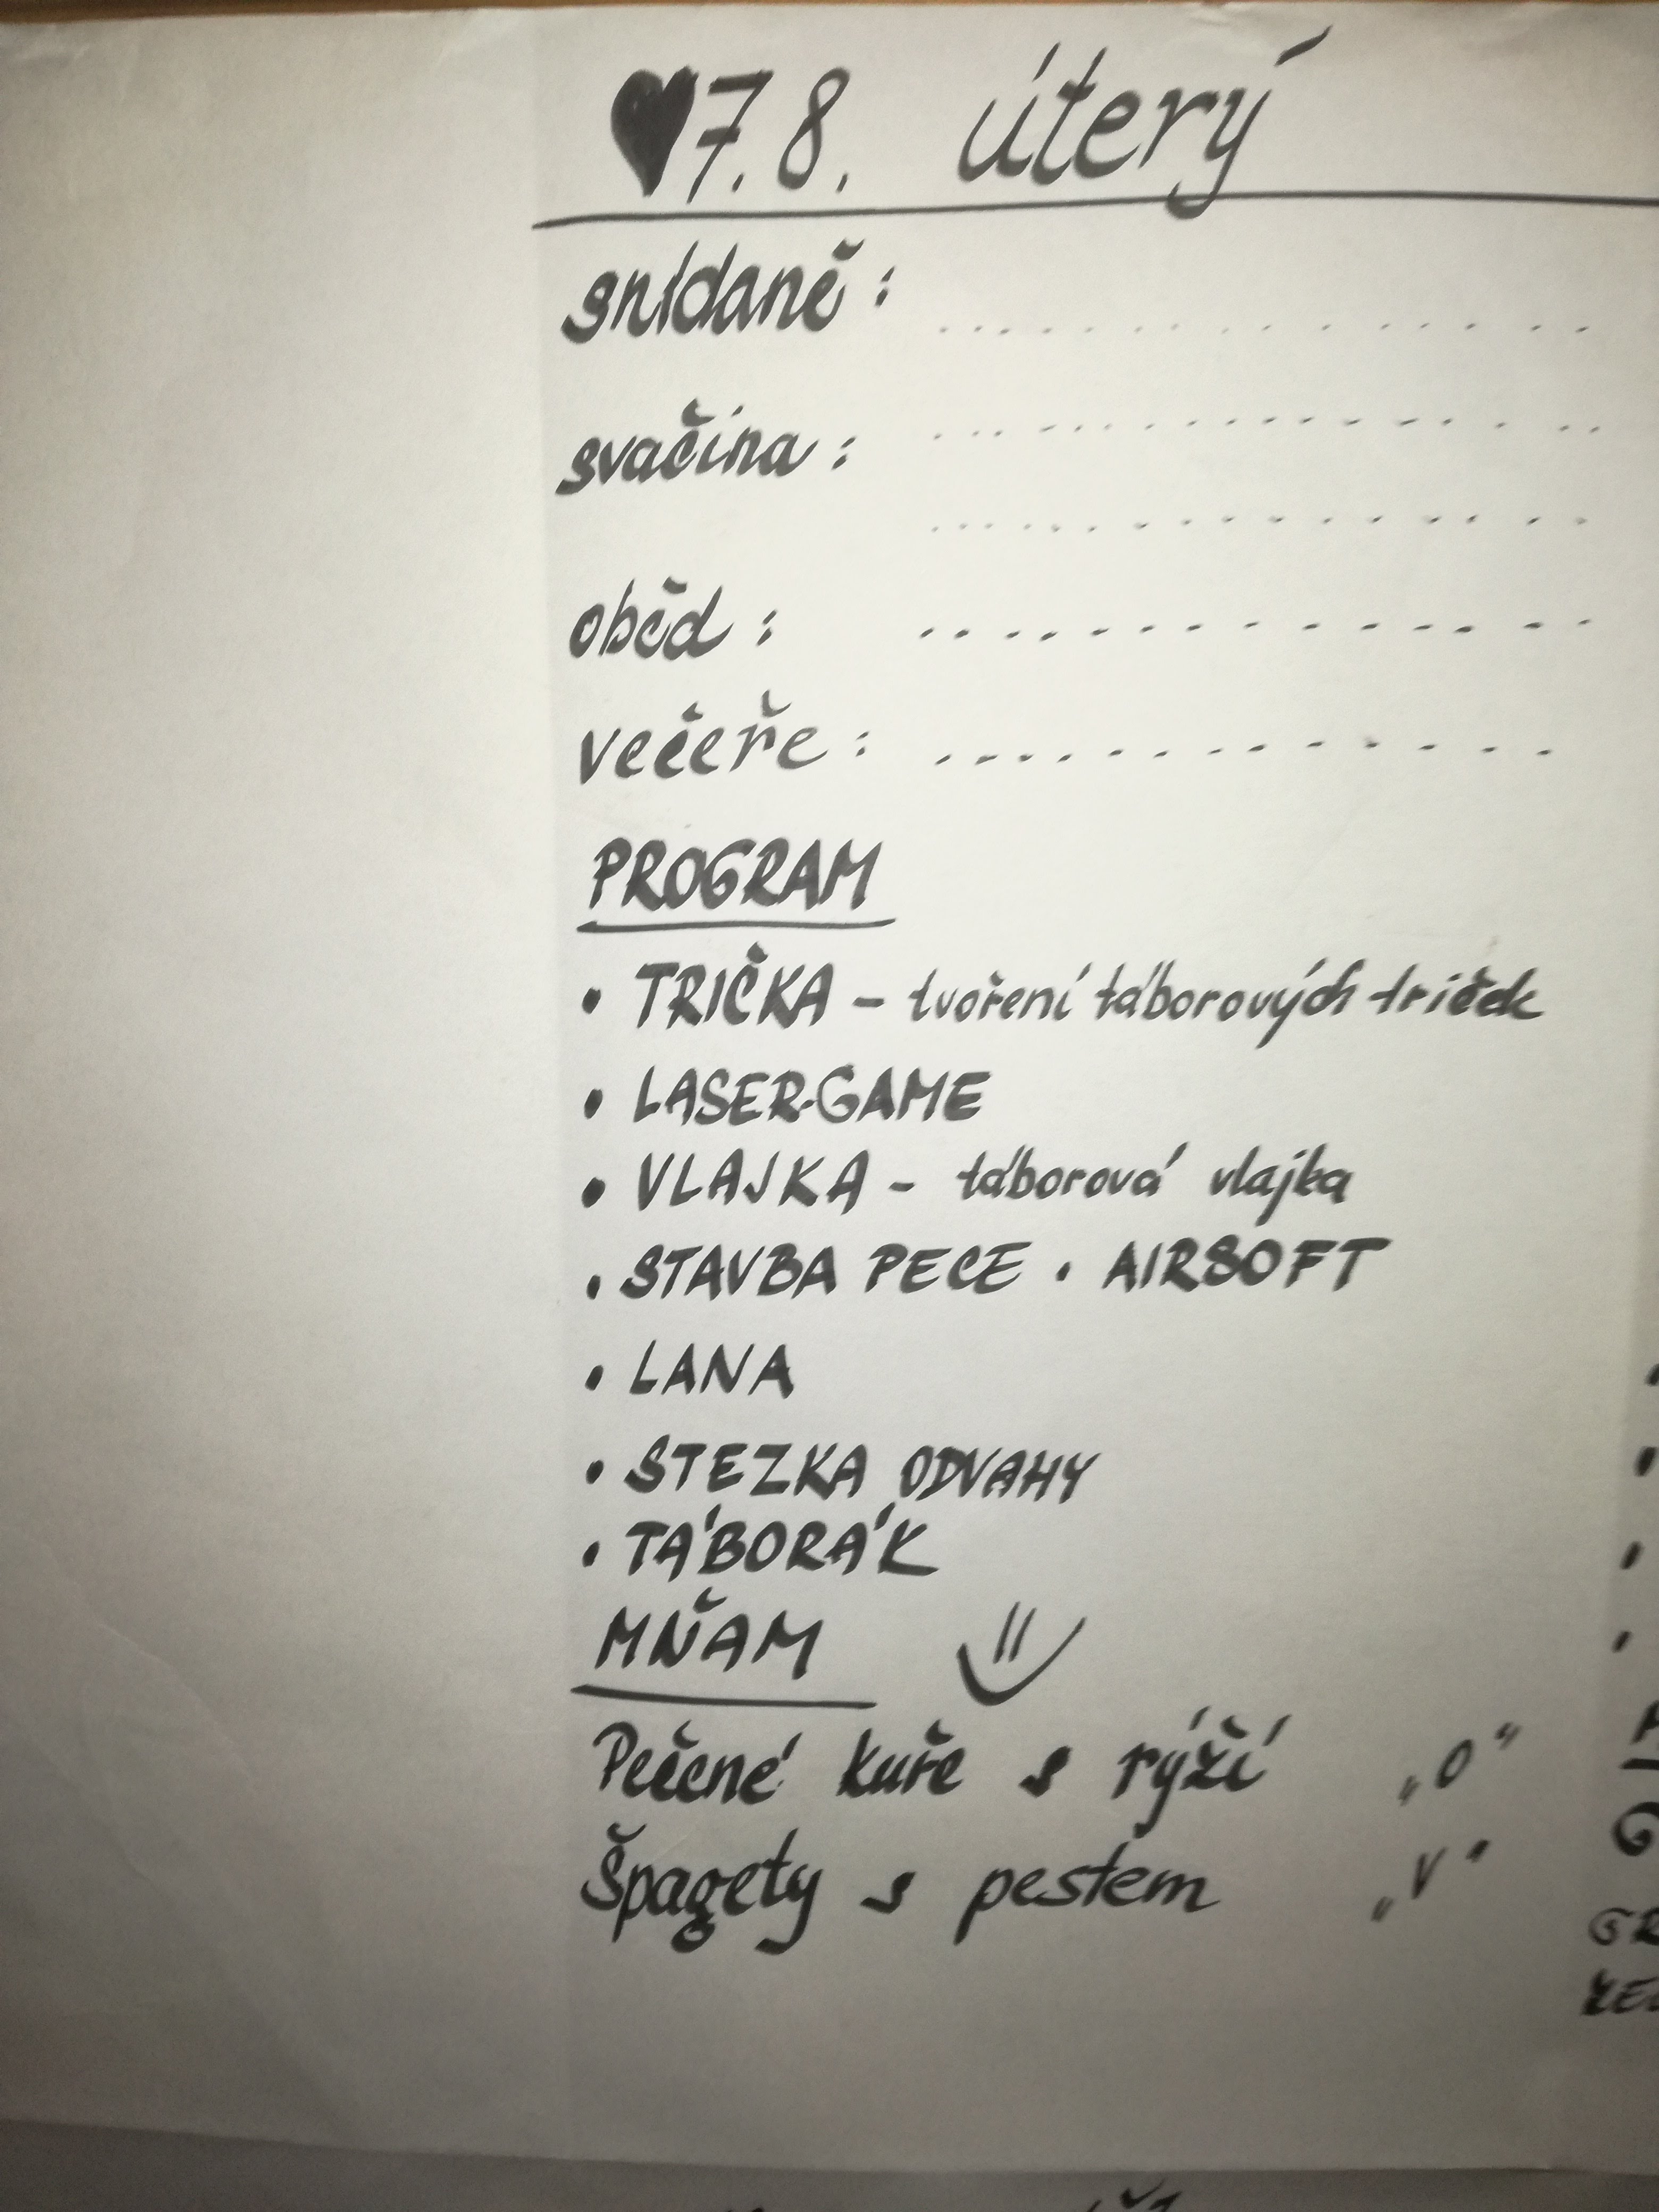 ♥7.8. úterý
snídaně: ................
svačina: ................
................
oběd: ................
večeře: ..............
PROGRAM
• TRIČKA - tvoření táborových triček
• LASER-GAME
• VLAJKA - táborová vlajka
• STAVBA PECE • AIRSOFT
• LANA
• STEZKA ODVAHY
• TÁBORÁK
MŇAM
Pečené kuře s rýží „O“
Špagety s pestem „V“